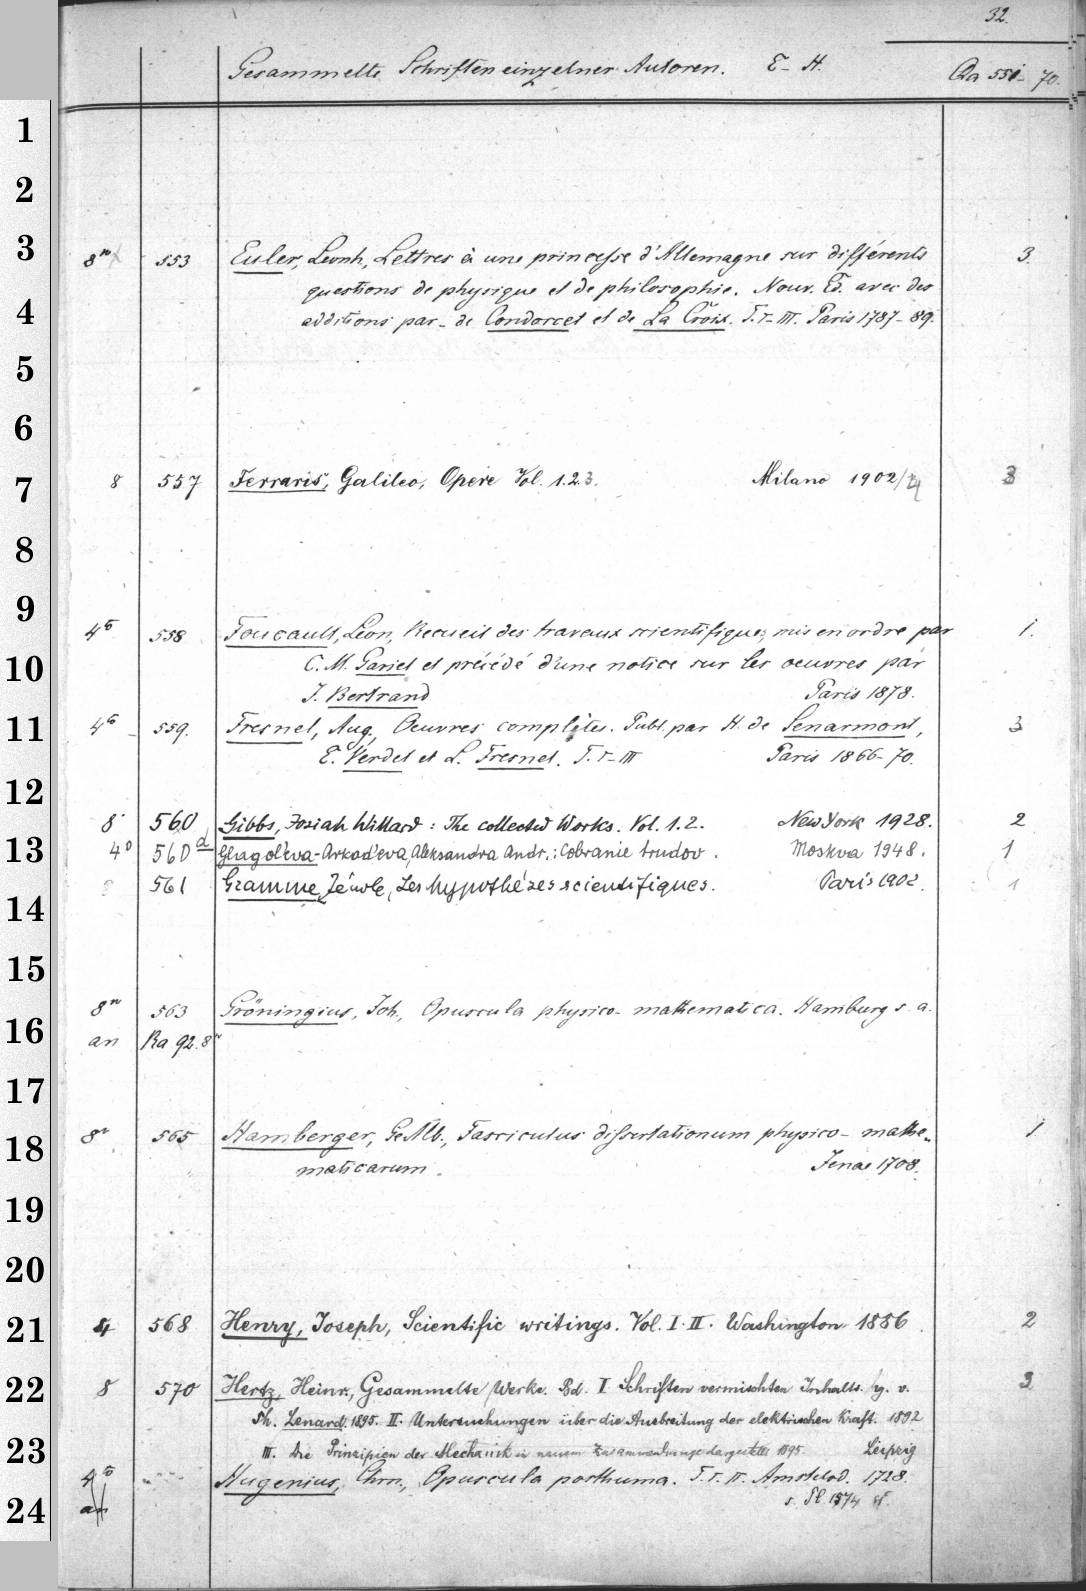 32.
Gesammelte Schriften einzelner Autoren. E-H. Qa 551-70.
1
2
3 8° 553 Euler, Leonh., Lettres à une princesse d'Allemagne sur différents 3.
questions de physique et de philosophie. Nouv. Ed. avec des
4 additions par de Condorcet et de La Croix. T. I-III. Paris 1787-89.
5
6
7 8 557 Ferraris, Galileo, Opere Vol. 1.2.3. Milano 1902/4 3
8
9 4° 558 Foucault, Léon, Recueil des travaux scientifiques, mis en ordre par 1.
10 C. M. Gariel et précédé d'une notice sur les oeuvres par
J. Bertrand Paris 1878.
11 4° 559. Fresnel, Aug., Oeuvres complètes. Publ. par H. de Senarmont, 3
E. Verdet et L. Fresnel. T. I-III Paris 1866-70.
12
8° 560 Gibbs, Josiah Willard: The collected Works. Vol. 1.2. New York 1928. 2
13 4° 560d Glagol'eva-Arkad'eva, Aleksandra Andr.: Cobranie trudov. Moskva 1948. 1
8 561 Gramme, Zénobe, Les hypothéses scientifiques. Paris 1902. 1
14
15
8° 563 Gröningius, Joh., Opuscula physico-mathematica. Hamburg s. a.
16 an Ra 92. 8°
17
18 8° 565 Hamberger, G. Alb., Fasciculus dissertationum physico-mathe- 1
maticarum. Jenae 1708.
19
20
21 4 568 Henry, Joseph, Scientific writings. Vol. I. II. Washington 1886 2
22 8 570 Hertz, Heinr., Gesammelte Werke. Bd. I Schriften vermischten Inhalts. hg. v. 3
Ph. Lenard. 1895. II. Untersuchungen über die Ausbreitung der elektrischen Kraft. 1892
23 III. Die Prinzipien der Mechanik in neuem Zusammenhange dargestellt 1895. Leipzig
4° Hugenius, Chrn., Opuscula posthuma. T. I. II. Amstelod. 1728.
24 an s. Pl. 1574